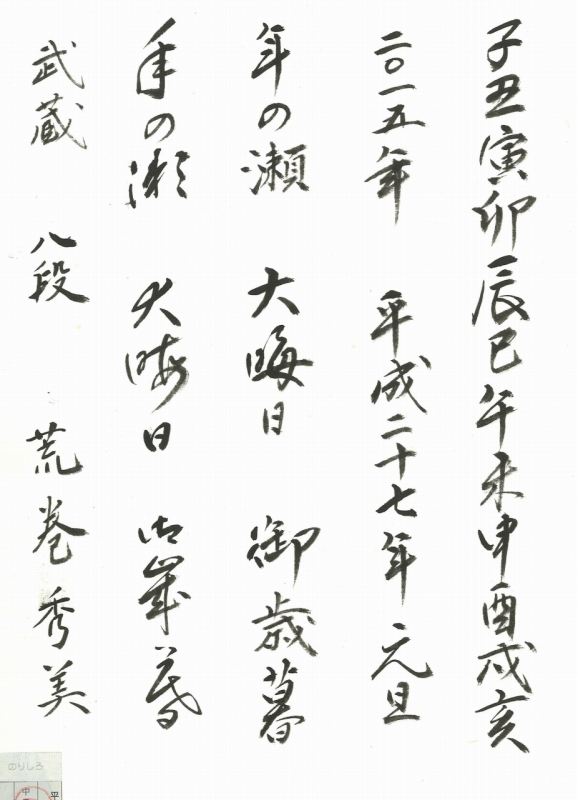 子丑寅卯辰巳午未申酉戌亥
二〇一五年 平成二十七年 元旦
年の瀬 大晦日 御歳暮
年の瀬 大晦日 御歳暮
武蔵 八段 荒巻秀美
のりしろ
平
中